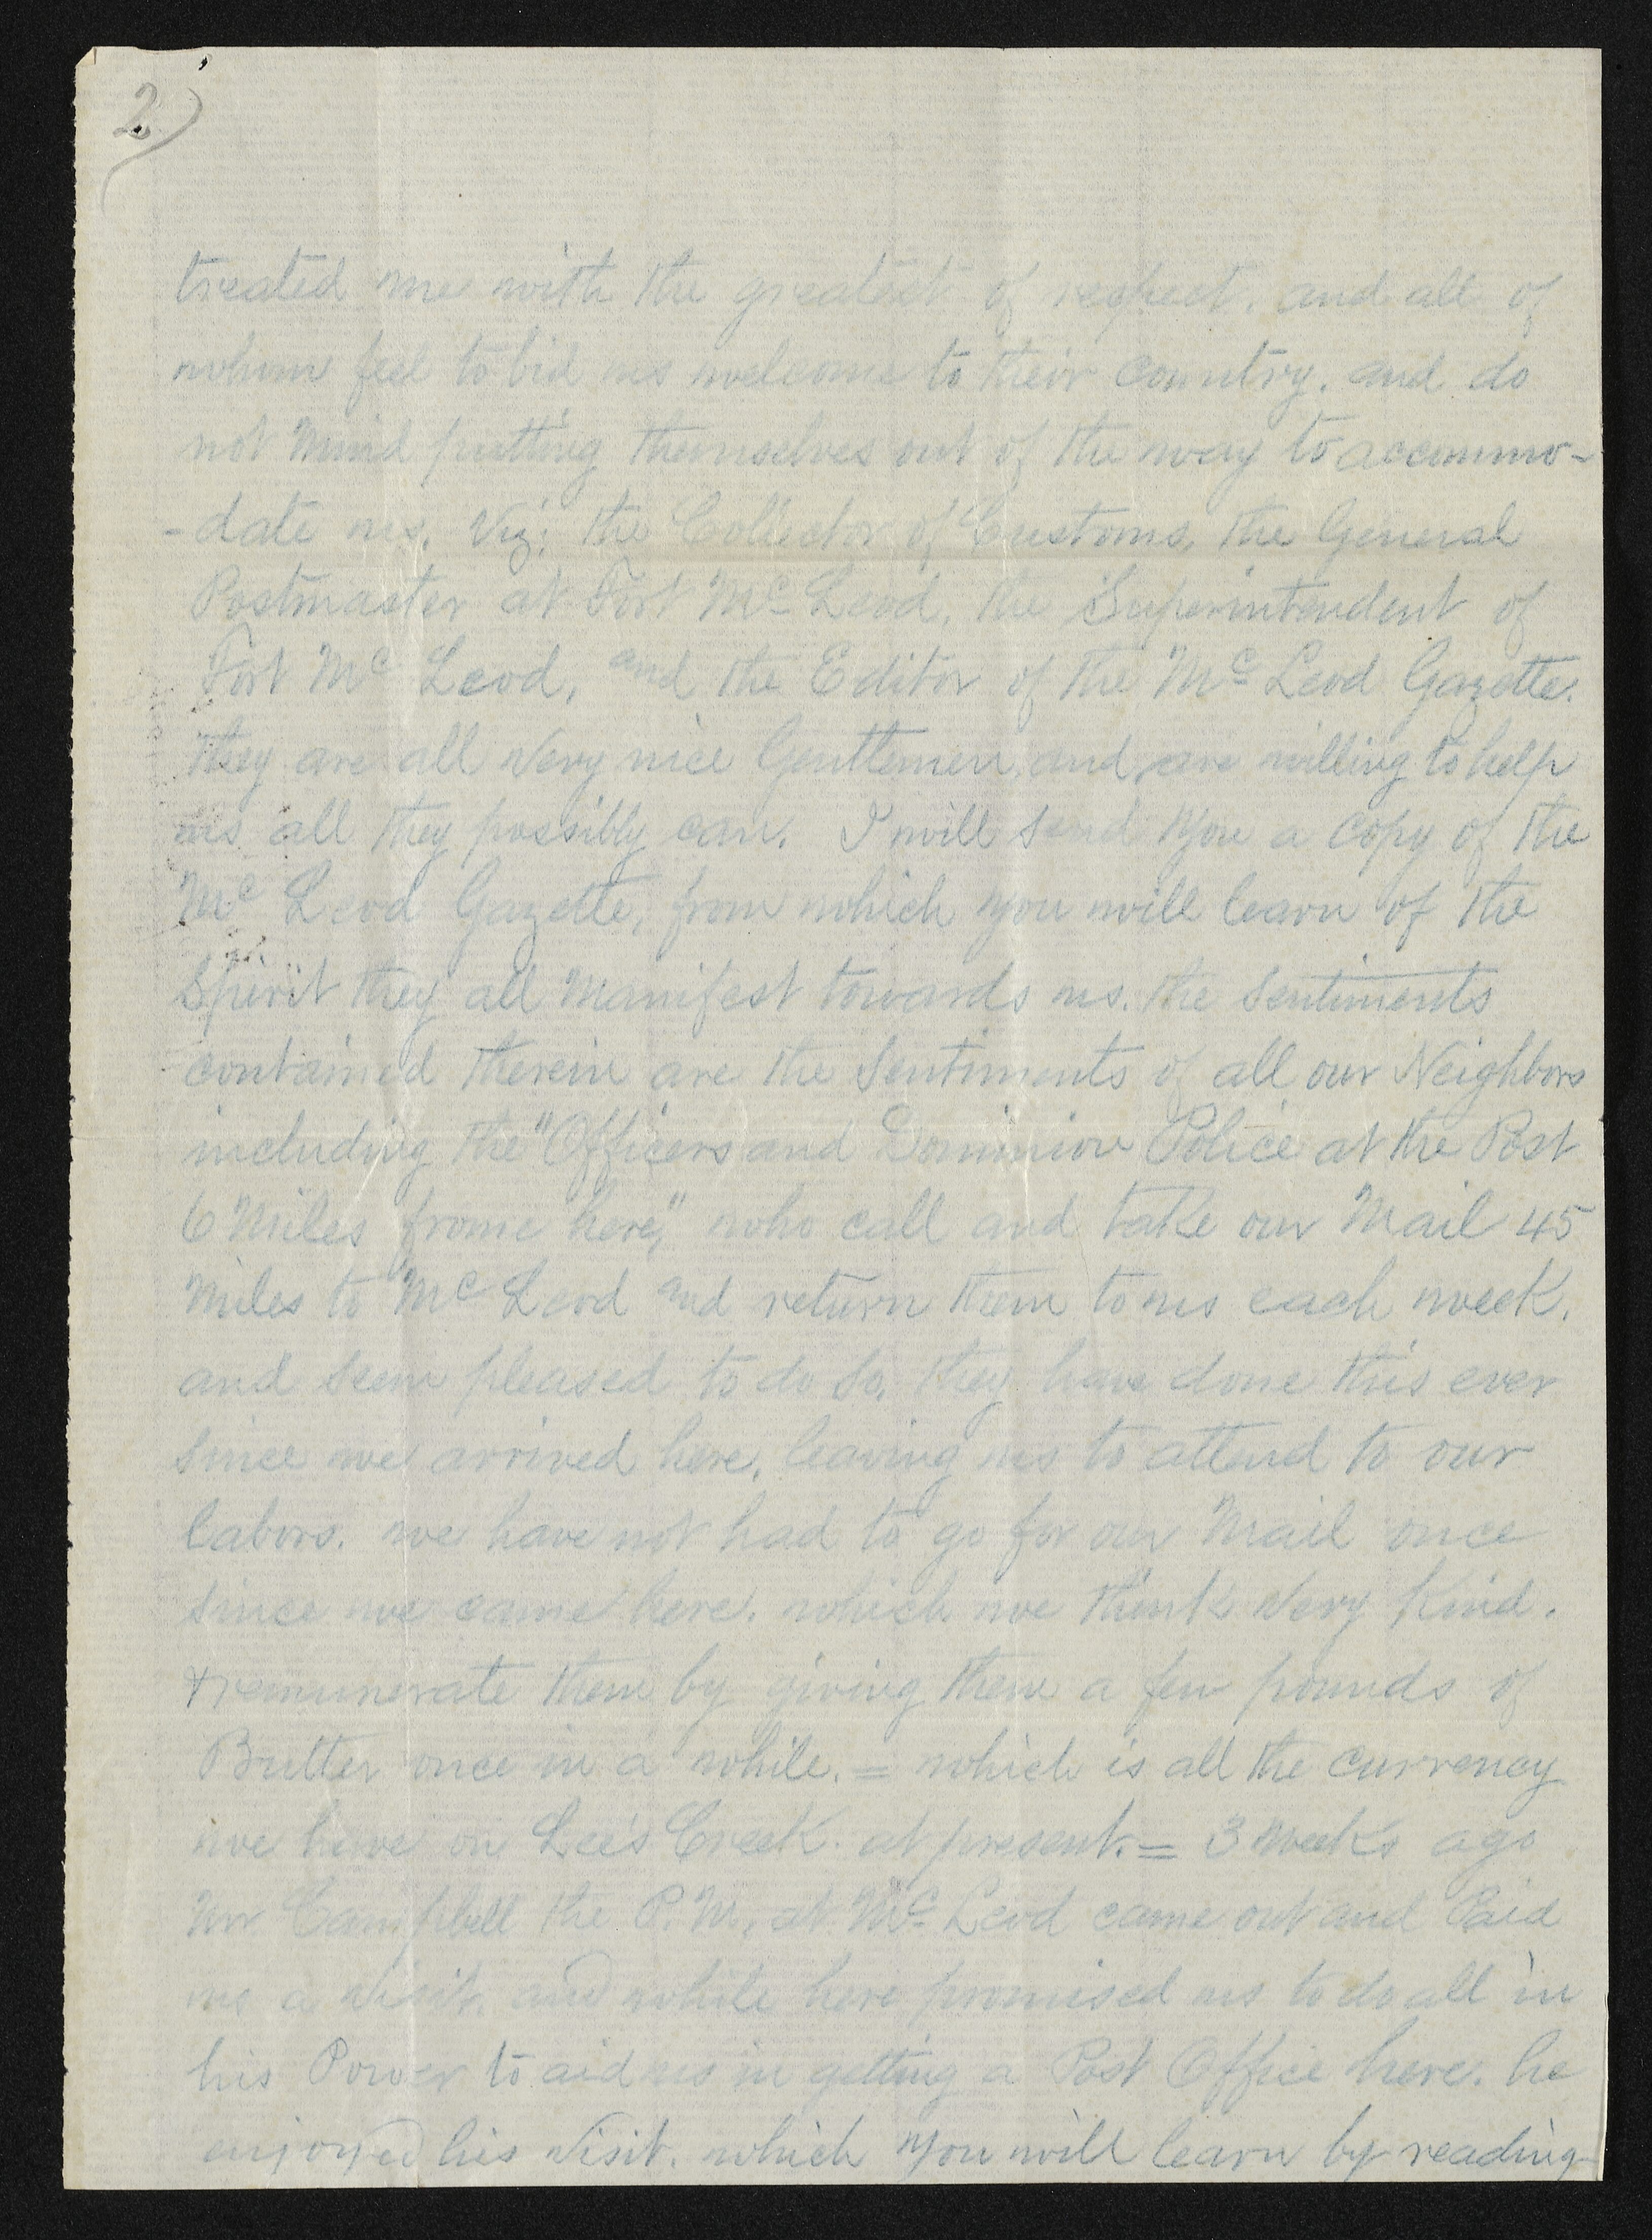 2)
treated me with the greatest of respect. and all of
whom feel to bid us welcome to their country. and do
not mind putting themselves out of the way to accommo-
-date us. Viz; the Collector of Customs, the General
Postmaster at Fort Mc Leod, the Superintendent of
Fort Mc Leod, and the Editor of the Mc Leod Gazette.
They are all Very nice Gentlemen, and are willing to help
us all they possibly can. I will send you a copy of the
Mc Leod Gazette, from which you will learn of the
Spirit they all Manifest towards us. the Sentiments
contained therein are the Sentiments of all our Neighbors
including the "Officers and Dominion Police at the Post
6 Miles frome here," who call and take our Mail 45
Miles to Mc Leod and return them to us each week.
and seem pleased to do so. they have done this ever
since we arrived here, leaving us to attend to our
labors. we have not had to go for our Mail once
since we came here. which we think Very Kind.
& remunerate them by giving them a few pounds of
Butter once in a while. = which is all the currency
we have on Lee's Creek. at present. = 3 weeks ago
Mr Campbell the P.M. at Mc Leod came out and Paid
us a Visit. and while here promised us to do all in
his Power to aid us in getting a Post Office here. he
enjoyed his Visit. which you will learn by reading